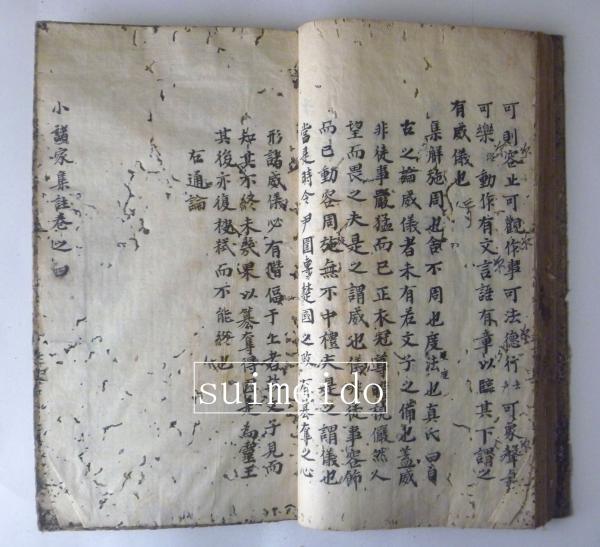 可則容止可觀作事可法德行可象聲氣
可樂動作有文言語有章以臨其下謂之
有威儀也
集解施周也舍不周也度法也真氏曰自
古之論威儀者未有若文子之備也盖威
非徒事嚴猛而已正衣冠尊瞻視儼然人
望而畏之夫是之謂威也儀非徒事容飾
而已動容周旋無不中禮夫是之謂儀也
當是時令尹圍專楚國之政有簒奪之心
形諸威儀必有僭偪于上者故文子見而
知其不終未幾果以簒奪得國是為靈王
其後亦復棧弑而不能終也
右通論
小諸家集註卷之四
suimeido